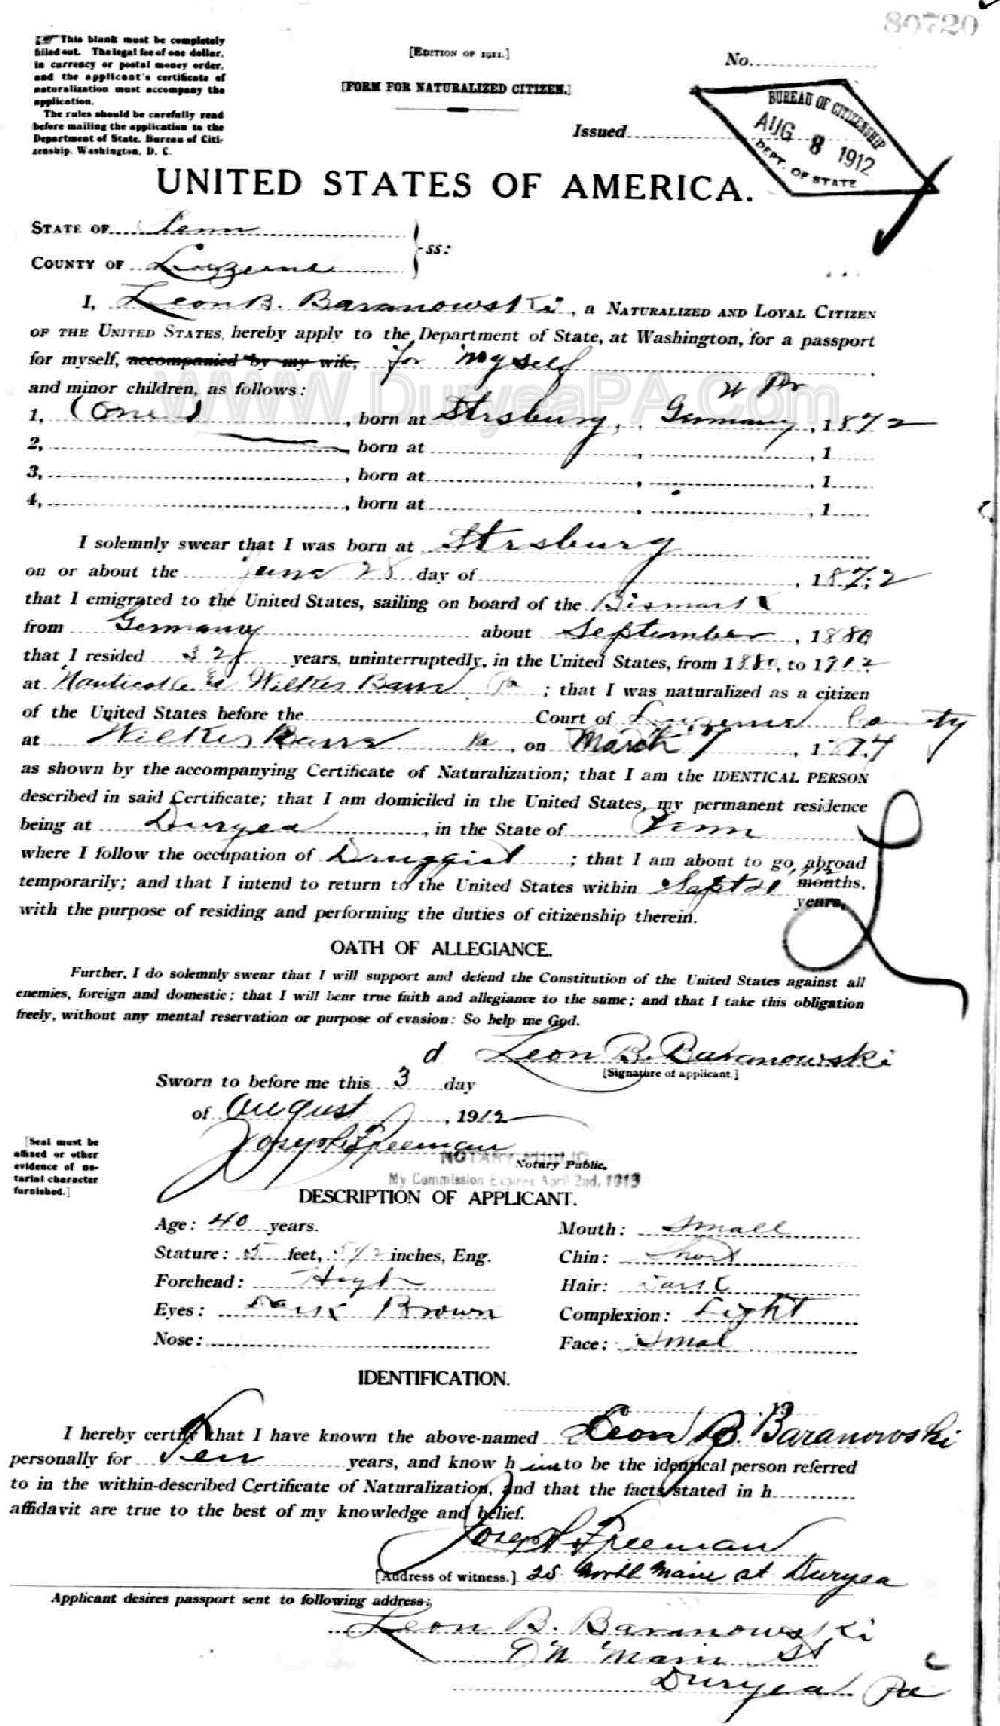 80720
☞ This blank must be completely
filled out. The legal fee of one dollar,
in currency or postal money order,
and the applicant's certificate of
naturalization must accompany the
application.
The rules should be carefully read
before mailing the application to the
Department of State, Bureau of Citi-
zenship, Washington, D. C.
[EDITION OF 1911.]
[FORM FOR NATURALIZED CITIZEN.]
No.
Issued
BUREAU OF CITIZENSHIP
AUG 8 1912
DEPT. OF STATE
UNITED STATES OF AMERICA.
STATE OF Penn
COUNTY OF Luzerne
ss:
I, Leon B. Baranowski, a NATURALIZED AND LOYAL CITIZEN
OF THE UNITED STATES, hereby apply to the Department of State, at Washington, for a passport
for myself, accompanied by my wife, for myself
and minor children, as follows:
WWW.DuryeaPA.Com
1, (One), born at Strsburg, Germany, 1872
2, born at , , 1
3, born at , , 1
4, born at , , 1
I solemnly swear that I was born at Strsburg
on or about the June 28 day of , 1872
that I emigrated to the United States, sailing on board of the Bismark
from Germany about September, 1880
that I resided 32 years, uninterruptedly, in the United States, from 1880, to 1912
at Nanticoke Wilkes Barre Pa; that I was naturalized as a citizen
of the United States before the Court of Luzerne County
at Wilkes Barre Pa, on March 7, 1894
as shown by the accompanying Certificate of Naturalization; that I am the IDENTICAL PERSON
described in said Certificate; that I am domiciled in the United States, my permanent residence
being at Duryea, in the State of Penn
where I follow the occupation of Druggist; that I am about to go abroad
temporarily; and that I intend to return to the United States within Sept months,
years,
with the purpose of residing and performing the duties of citizenship therein.
OATH OF ALLEGIANCE.
Further, I do solemnly swear that I will support and defend the Constitution of the United States against all
enemies, foreign and domestic; that I will bear true faith and allegiance to the same; and that I take this obligation
freely, without any mental reservation or purpose of evasion: So help me God.
Leon B. Baranowski
[Signature of applicant.]
Sworn to before me this 3d day
of August, 1912
Joseph F Freeman
NOTARY PUBLIC
Notary Public.
My Commission Expires April 2nd, 1913
[Seal must be
affixed or other
evidence of no-
tarial character
furnished.]
DESCRIPTION OF APPLICANT.
Age: 40 years. Mouth: Small
Stature: 5 feet, 5 1/2 inches, Eng. Chin: Short
Forehead: Hight Hair: Dark
Eyes: Dark Brown Complexion: Light
Nose: Face: Smal
IDENTIFICATION.
I hereby certify that I have known the above-named Leon B Baranowski
personally for Ten years, and know him to be the identical person referred
to in the within-described Certificate of Naturalization, and that the facts stated in h
affidavit are true to the best of my knowledge and belief.
Joseph F Freeman
[Address of witness.] 25 North Main st Duryea
Applicant desires passport sent to following address:
Leon B. Baranowski
N Main St
Duryea Pa